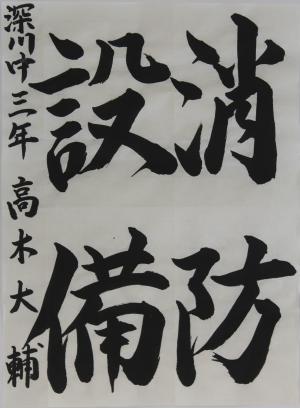 消防
設備
深川中三年 高木大輔